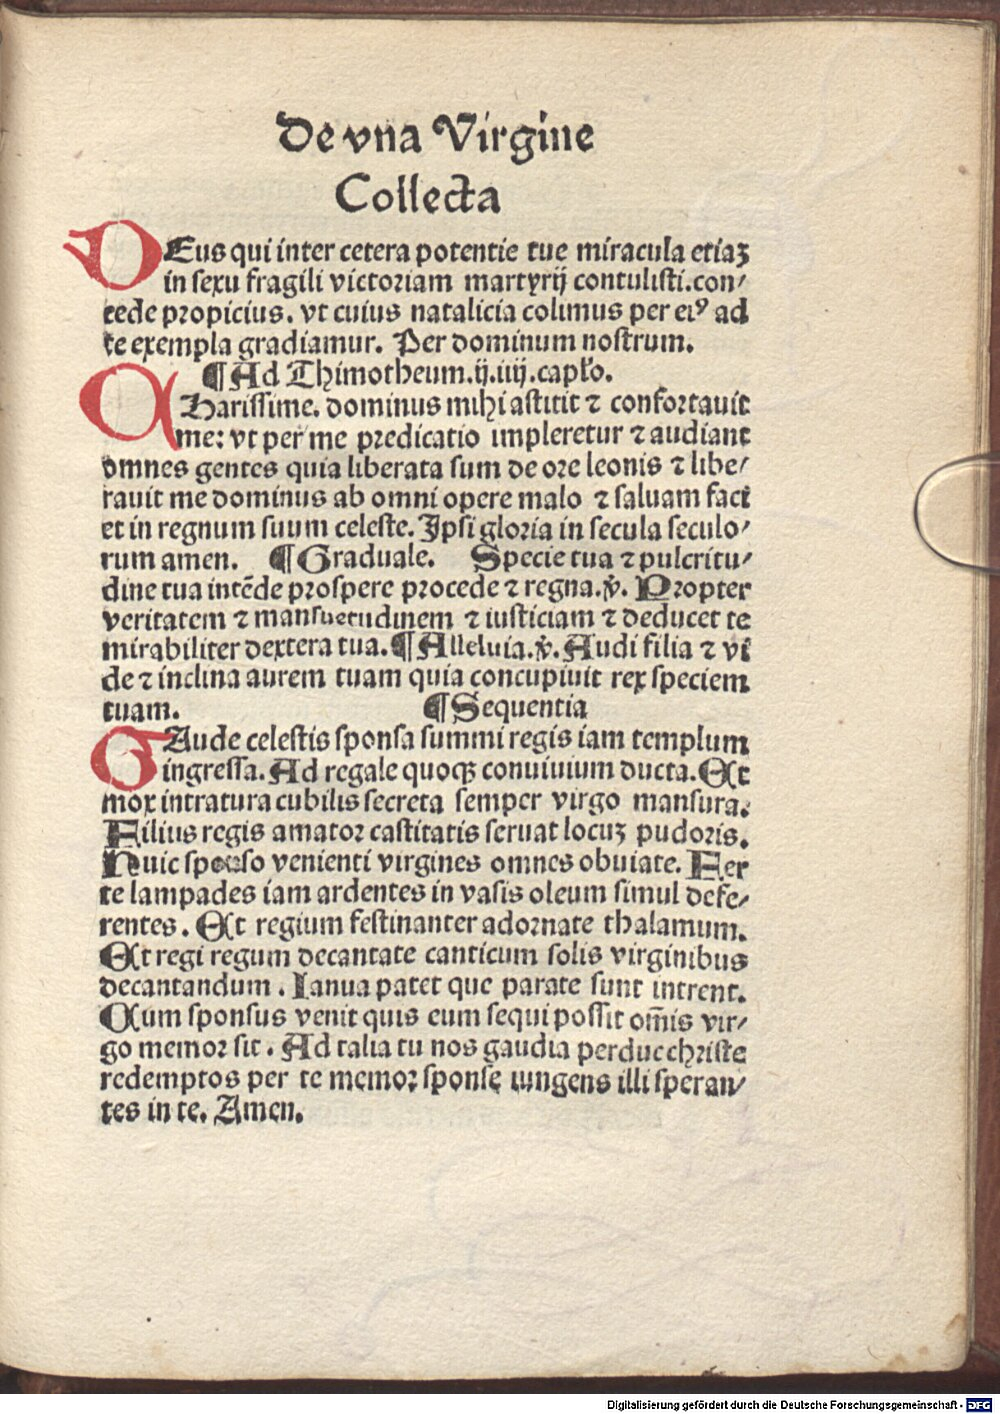 De vna Virgine
Collecta
DEus qui inter cetera potentie tue miracula etiaꝫ
in sexu fragili victoriam martyrij contulisti.con/
cede propicius. vt cuius natalicia colimus per eiꝰ ad
te exempla gradiamur. Per dominum nostrum.
¶Ad Thimotheum.ij.iiij.capło.
CHarissime. dominus mihi astitit ⁊ confortauit
me: vt per me predicatio impleretur ⁊ audiant
omnes gentes quia liberata sum de ore leonis ⁊ libe/
rauit me dominus ab omni opere malo ⁊ saluam faci
et in regnum suum celeste. Ipsi gloria in secula seculo/
rum amen. ¶Graduale. Specie tua ⁊ pulcritu/
dine tua intēde prospere procede ⁊ regna.ꝟ. Propter
veritatem ⁊ mansuetudinem ⁊ iusticiam ⁊ deducet te
mirabiliter dextera tua.¶Alleluia.ꝟ. Audi filia ⁊ vi
de ⁊ inclina aurem tuam quia concupiuit rex speciem
tuam. ¶Sequentia
GAude celestis sponsa summi regis iam templum
ingressa. Ad regale quoqꝫ conuiuium ducta. Et
mox intratura cubilis secreta semper virgo mansura.
Filius regis amator castitatis seruat locuꝫ pudoris.
Huic sponso venienti virgines omnes obuiate. Fer
te lampades iam ardentes in vasis oleum simul defe/
rentes. Et regium festinanter adornate thalamum.
Et regi regum decantate canticum solis virginibus
decantandum. Ianua patet que parate sunt intrent.
Cum sponsus venit quis eum sequi possit om̄is vir/
go memor sit. Ad talia tu nos gaudia perduc christe
redemptos per te memor sponse iungens illi speran/
tes in te. Amen.
Digitalisierung gefördert durch die Deutsche Forschungsgemeinschaft - DFG